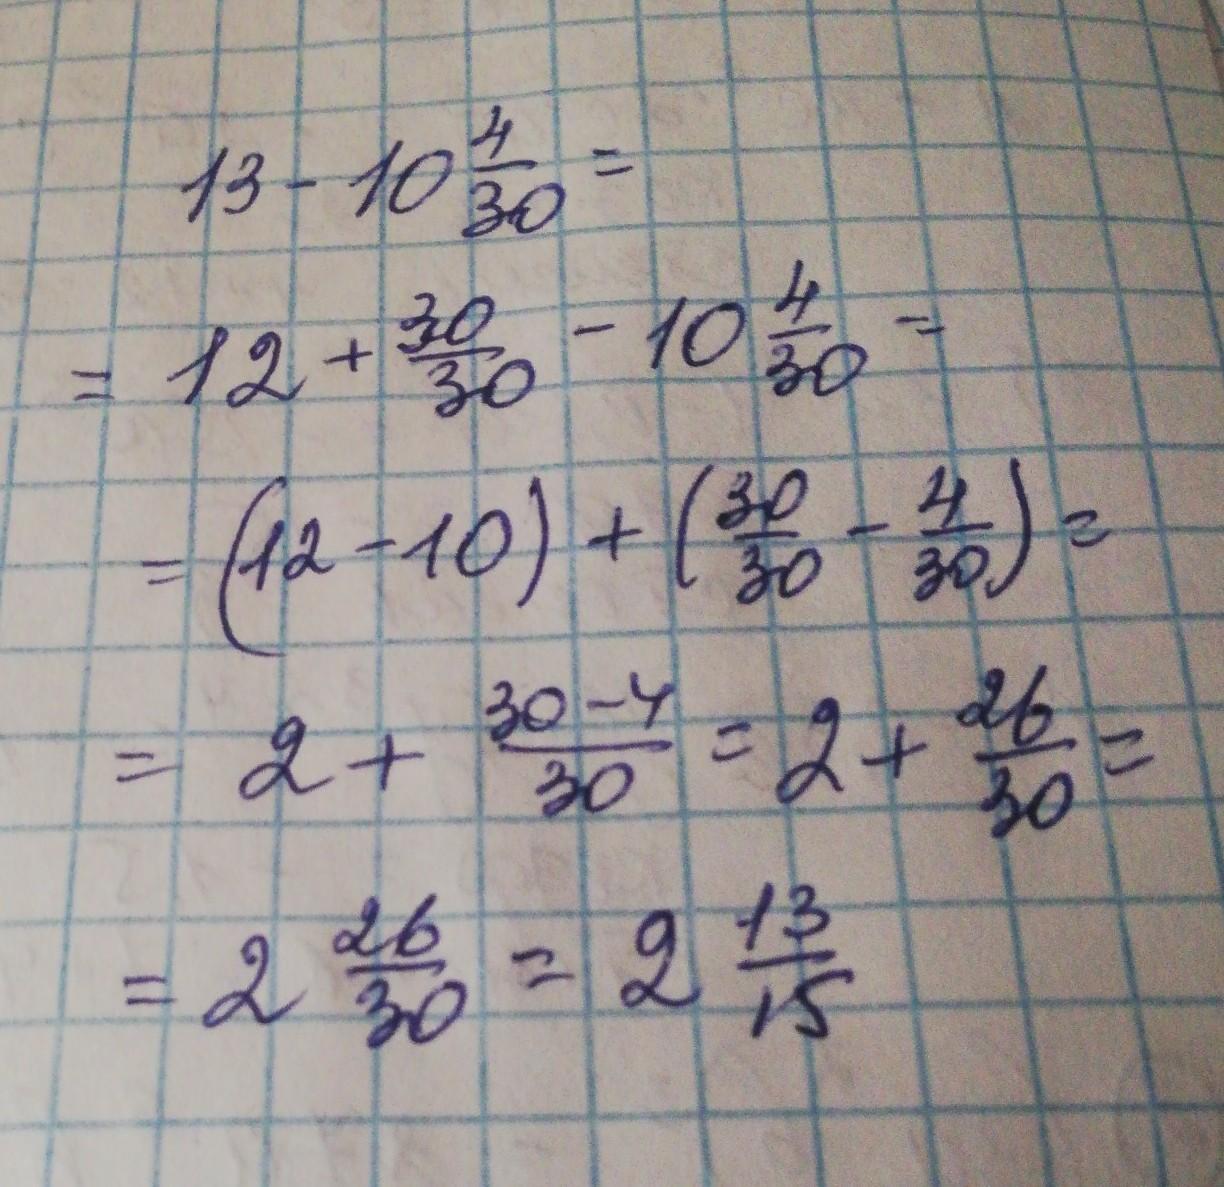 13 - 10 4/30 =
= 12 + 30/30 - 10 4/30 =
= (12 - 10) + (30/30 - 4/30) =
= 2 + 30-4/30 = 2 + 26/30 =
= 2 26/30 = 2 13/15